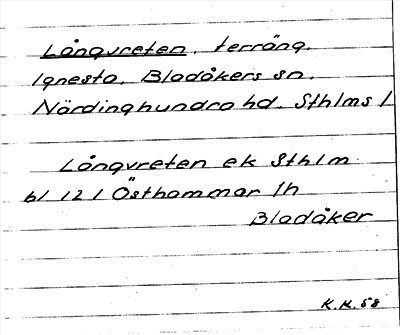 Långvreten, terräng.
Ignesta, Bladåkers sn.
Närdinghundra hd. Sthlms l
Långvreten ek Sthlm
bl 121 Östhammar 1h
Bladåker
K.K. 58